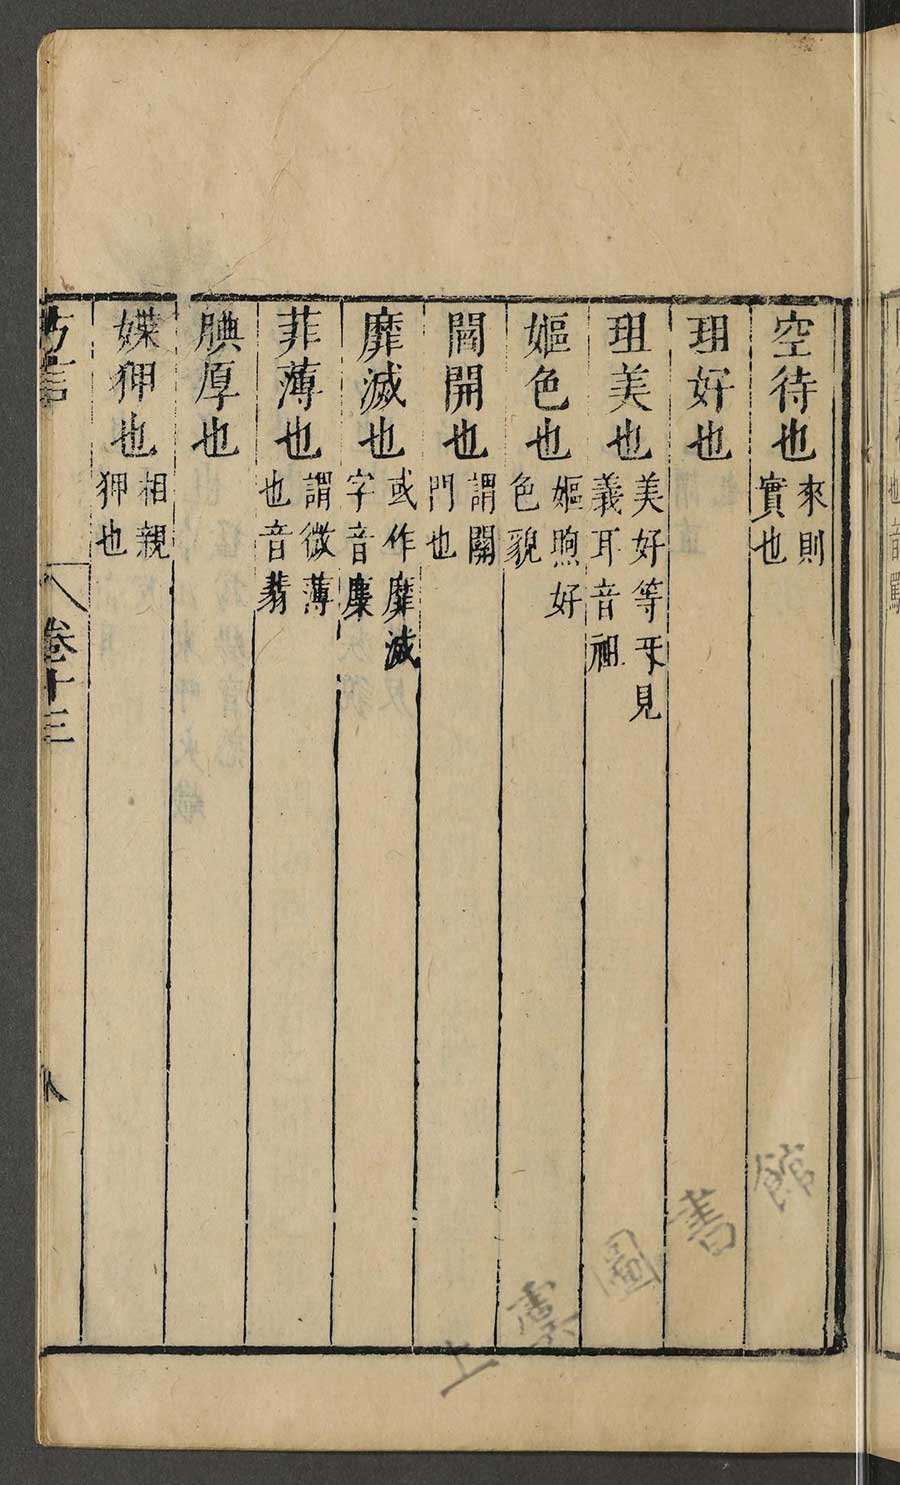 空待也來則實也
珇好也
珇美也美好等㸦見義耳音祖
嫗色也嫗煦好色貌
閻開也謂關門也
靡滅也或作靡滅字音麋
菲薄也謂微薄也音翡
腆厚也
媟狎也相親狎也
方言
卷十三
八
圖書館